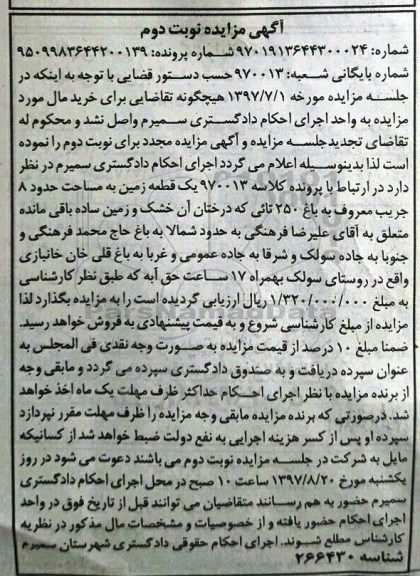 آگهی مزایده نوبت دوم
شماره: ۹۷۰۱۹۱۳۶۴۴۳۰۰۰۲۴ شماره پرونده: ۹۵۰۹۹۸۳۶۴۴۲۰۰۱۳۹
شماره بایگانی شعبه: ۹۷۰۰۱۳ حسب دستور قضایی با توجه به اینکه در
جلسه مزایده مورخه ۱۳۹۷/۷/۱ هیچگونه تقاضایی برای خرید مال مورد
مزایده به واحد اجرای احکام دادگستری سمیرم واصل نشد و محکوم له
تقاضای تجدید جلسه مزایده و آگهی مزایده مجدد برای نوبت دوم را نموده
است لذا بدینوسیله اعلام می گردد اجرای احکام دادگستری سمیرم در نظر
دارد در ارتباط با پرونده کلاسه ۹۷۰۰۱۳ یک قطعه زمین به مساحت حدود ۸
جریب معروف به باغ ۲۵۰ تائی که درختان آن خشک و زمین ساده باقی مانده
متعلق به آقای علیرضا فرهنگی به حدود شمالا به باغ حاج محمد فرهنگی و
جنوبا به جاده سولک و شرقا به جاده عمومی و غربا به باغ قلی خان خانبازی
واقع در روستای سولک بهمراه ۱۷ ساعت حق آبه که طبق نظر کارشناسی
به مبلغ ۱/۳۲۰/۰۰۰/۰۰۰ ریال ارزیابی گردیده است را به مزایده بگذارد لذا
مزایده از مبلغ کارشناسی شروع و به قیمت پیشنهادی به فروش خواهد رسید.
ضمنا مبلغ ۱۰ درصد از قیمت مزایده به صورت وجه نقدی فی المجلس به
عنوان سپرده دریافت و به صندوق دادگستری سپرده می گردد و مابقی وجه
از برنده مزایده با نظر اجرای احکام حداکثر ظرف مهلت یک ماه اخذ خواهد
شد. درصورتی که برنده مزایده مابقی وجه مزایده را ظرف مهلت مقرر نپردازد
سپرده او پس از کسر هزینه اجرایی به نفع دولت ضبط خواهد شد از کسانیکه
مایل به شرکت در جلسه مزایده نوبت دوم می باشند دعوت می شود در روز
یکشنبه مورخ ۱۳۹۷/۸/۲۰ ساعت ۱۰ صبح در محل اجرای احکام دادگستری
سمیرم حضور به هم رسانند متقاضیان می توانند قبل از تاریخ فوق در واحد
اجرای احکام حضور یافته و از خصوصیات و مشخصات مال مذکور در نظریه
کارشناس مطلع شوند. اجرای احکام حقوقی دادگستری شهرستان سمیرم
شناسه ۲۶۶۴۳۰
ParsNamadData